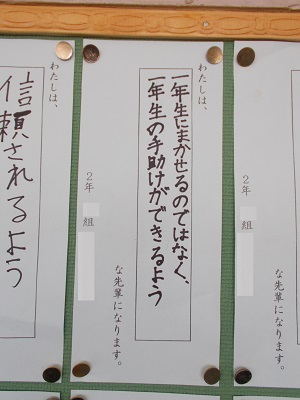 わたしは、
一年生にまかせるのではなく、
一年生の手助けができるよう
な先輩になります。
2年 組
わたしは、
信頼されるよう
な先輩になります。
2年 組